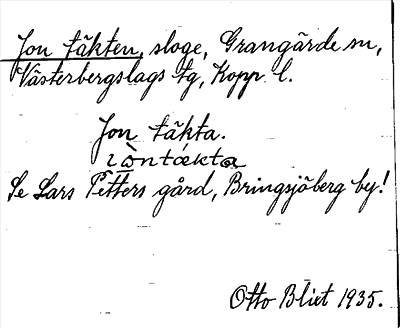 Jon täkten, sloge, Grangärde sn,
Västerbergslags tg, Kopp. l.
Jon täkta.
ròntækta
Se Lars Petters gård, Bringsjöberg by!
Otto Blixt 1935.